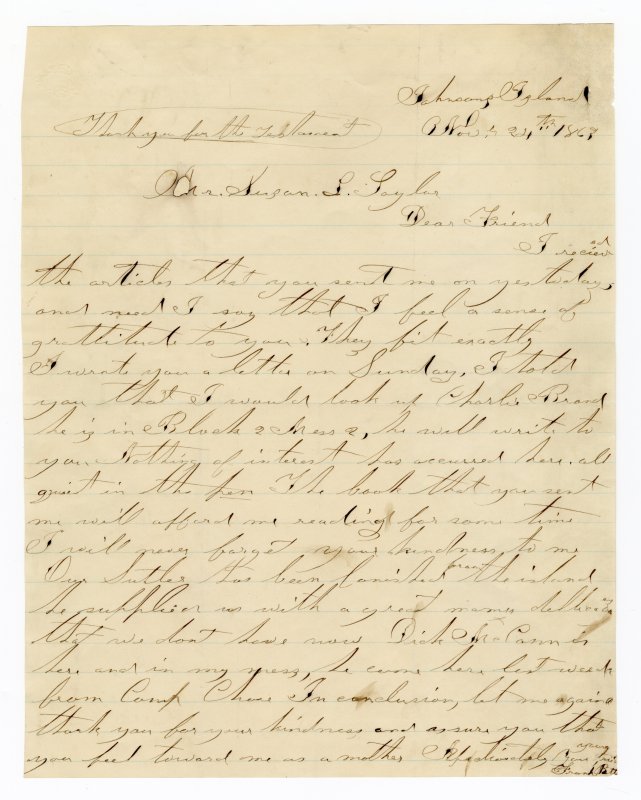 Johnsons Island
Nov. 24th 1863
Thank you for the testament
Mrs. Susan. L. Taylor
Dear Friend
I recieved
the articles that you sent me on yestoday,
and need I say that I feel a sense of
grattitude to you. They fit exactly
I wrote you a letter on Sunday, I told
you that I would look up Charlie Brand
he is in Block 2 Mess 2, he will write to
you Nothing of interest has occurred here. all
quiet in the pen The book that you sent
me will afford me reading for some time
I will never forget your kindness to me
Our Sutler has been banished from the island
he supplied us with a great many
that we dont have now Dick McCann is
here and in my mess, he came here last week
from Camp Chase In conclusion, let me again
thank you for your kindness and assure you that
you feel toward me as a mother Affectionately